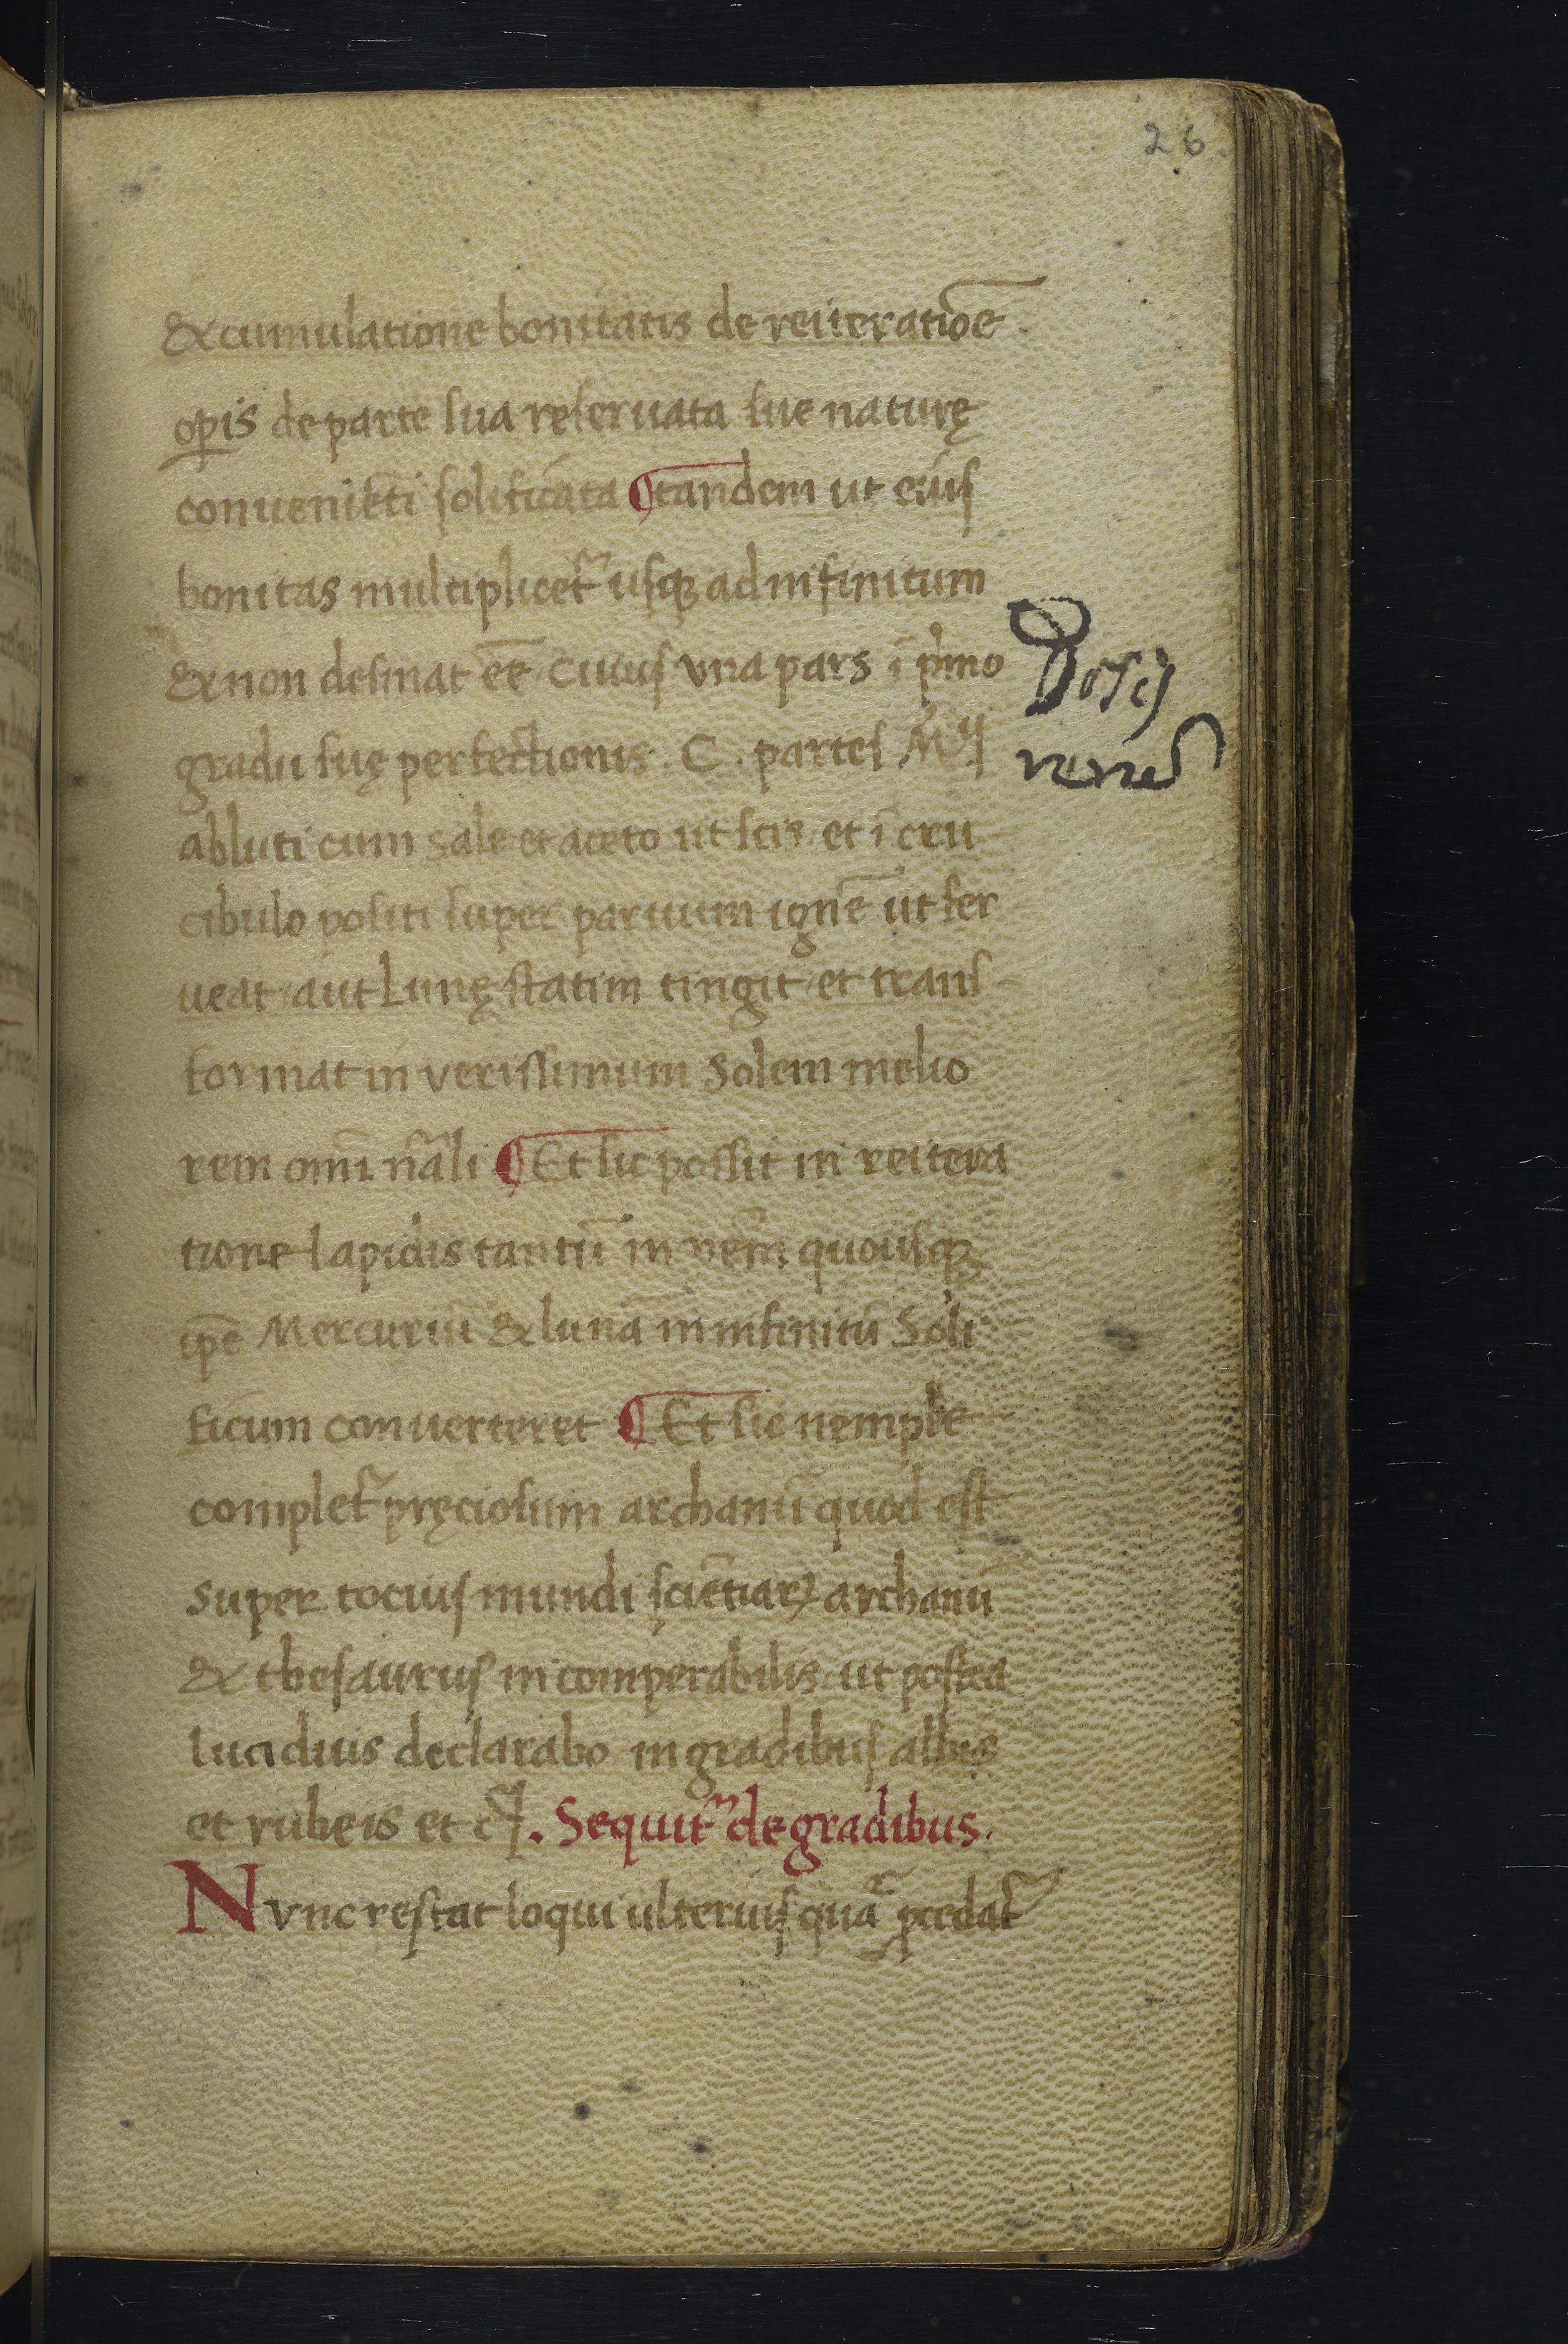 26
& cumulatione bonitatis de reiteratiōe
oꝑis de parte sua reseruata sue naturę
conueniēti solificata ¶ tandem ut eius
bonitas multiplicet᷑ usqꝫ ad infinitum
& non desinat eē cuius vna pars ī pͥmo
gradu suę perfectionis . C . partes Mͥʲ
abluti cum sale et aceto ut scis et ī cru
cibulo positi super paruum ignē ut fer
ueat aut Lunę statim tingit et trans-
format in verissimum Solem melio
rem omī nāli ¶ Et sic possit in reitera
tione lapidis tantū quousqꝫ
ip̄e Mercuriū & lunā in infinitū Soli
ficum conuerteret ¶ Et sic nempe
complet᷑ pręciosum archanū quod est
super tocius mundi sciētiaꝝ archanū
& thesaurus incomperabilis ut postea
lucidius declarabo in gradibus albis
et rubeis et cꝭ. Sequit᷑ de gradibus.
Nvnc restat loqui ulterius quā
Dosis